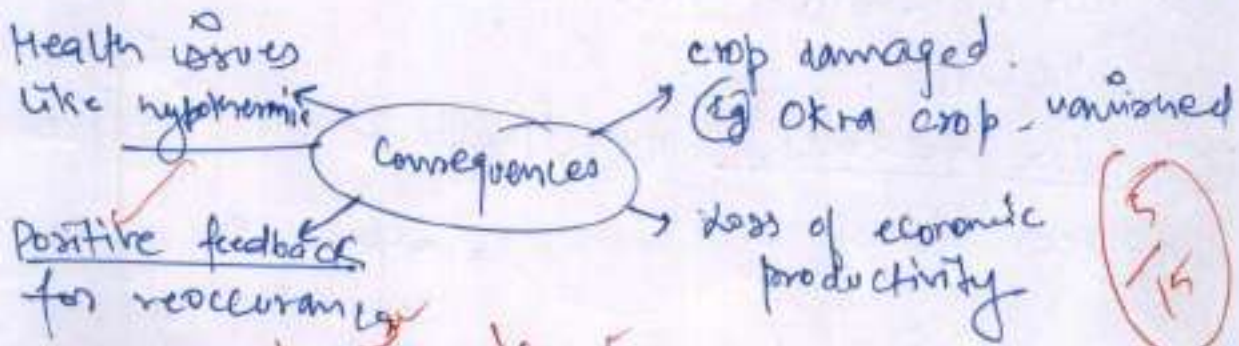 Health issues
like hypothermic
Positive feedback
for reoccurance
Consequences
crop damaged.
Eg Okra crop - vanished
Loss of economic
productivity
5/15